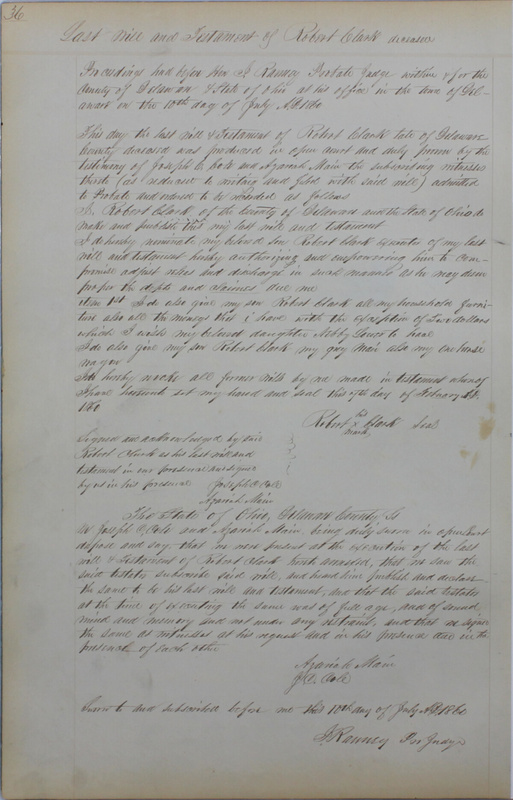 36
Last Will and Testament of Robert Clark deceased
Proceedings had before Hon Ranney Probate Judge within & for the
County of Delaware & State of Ohio at his office in the town of Del-
aware on the 10th day of July AD 1860
This day the last will & Testament of Robert Clark late of Delaware
County deceased was produced in open court and duly proven by the
testimony of Joseph C. Cole and Azariah Main the subscribing witnesses
thereto (as reduced to writing and filed with said will) admitted
to Probate and ordered to be recorded as follows
I, Robert Clark of the County of Delaware and the State of Ohio do
make and publish this my last will and testament
I do hereby nominate my beloved son Robert Clark executor of my last
will and testament hereby authorizing and empowering him to com-
promise adjust release and discharge in such manner as he may deem
proper the debts and claims due me
Item 1st I do also give my son Robert Clark all my household furni-
ture also all the moneys that I have with the exception of two dollars
which I wish my beloved daughter to have
I do also give my son Robert Clark my grey Mair also my one horse
wagon
I do hereby revoke all former wills by me made in testament whereof
I have hereunto set my hand and seal this day of February AD
1860
Robert his x mark Clark Seal
Signed and acknowledged by said
Robert Clark as his last will and
testament in our presence and signed
by us in his presence Joseph C. Cole
Azariah Main
The State of Ohio, Delaware County ss
We Joseph C. Cole and Azariah Main, being duly sworn in open Court
depose and say, that we were present at the execution of the last
will & Testament of Robert Clark hereto annexed, that we saw the
said testator subscribe said will, and heard him publish and declare
the same to be his last will and testament, and that the said testator
at the time of executing the same was of full age, and of sound
mind and memory and not under any restraint, and that we signed
the same as witnesses at his request and in his presence and in the
presence of each other
Azariah Main
J. C. Cole
Sworn to and subscribed before me this 10th day of July AD 1860
Ranney Pro Judge